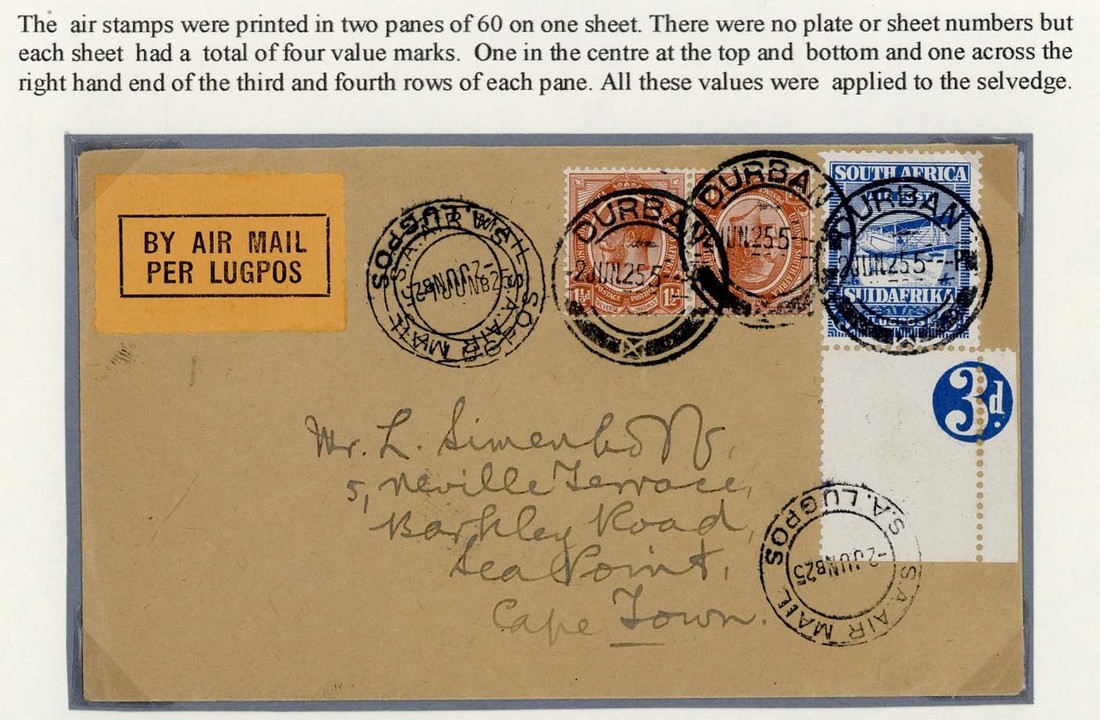 The air stamps were printed in two panes of 60 on one sheet. There were no plate or sheet numbers but
each sheet had a total of four value marks. One in the centre at the top and bottom and one across the
right hand end of the third and fourth rows of each pane. All these values were applied to the selvedge.
BY AIR MAIL
PER LUGPOS
S.A. AIR MAIL
S.A. LUGPOS
DURBAN
2 JUN 25 5-
1½d 1½d
DURBAN
2 JUN 25 5-
SOUTH AFRICA
DURBAN
2 JUN 25 5-
SUIDAFRIKA
3d.
Mr. L.
5, Neville Terrace,
Barkley Road,
Sea Point,
Cape Town.
S.A. LUGPOS
-2 JUN B 25
S.A. AIR MAIL